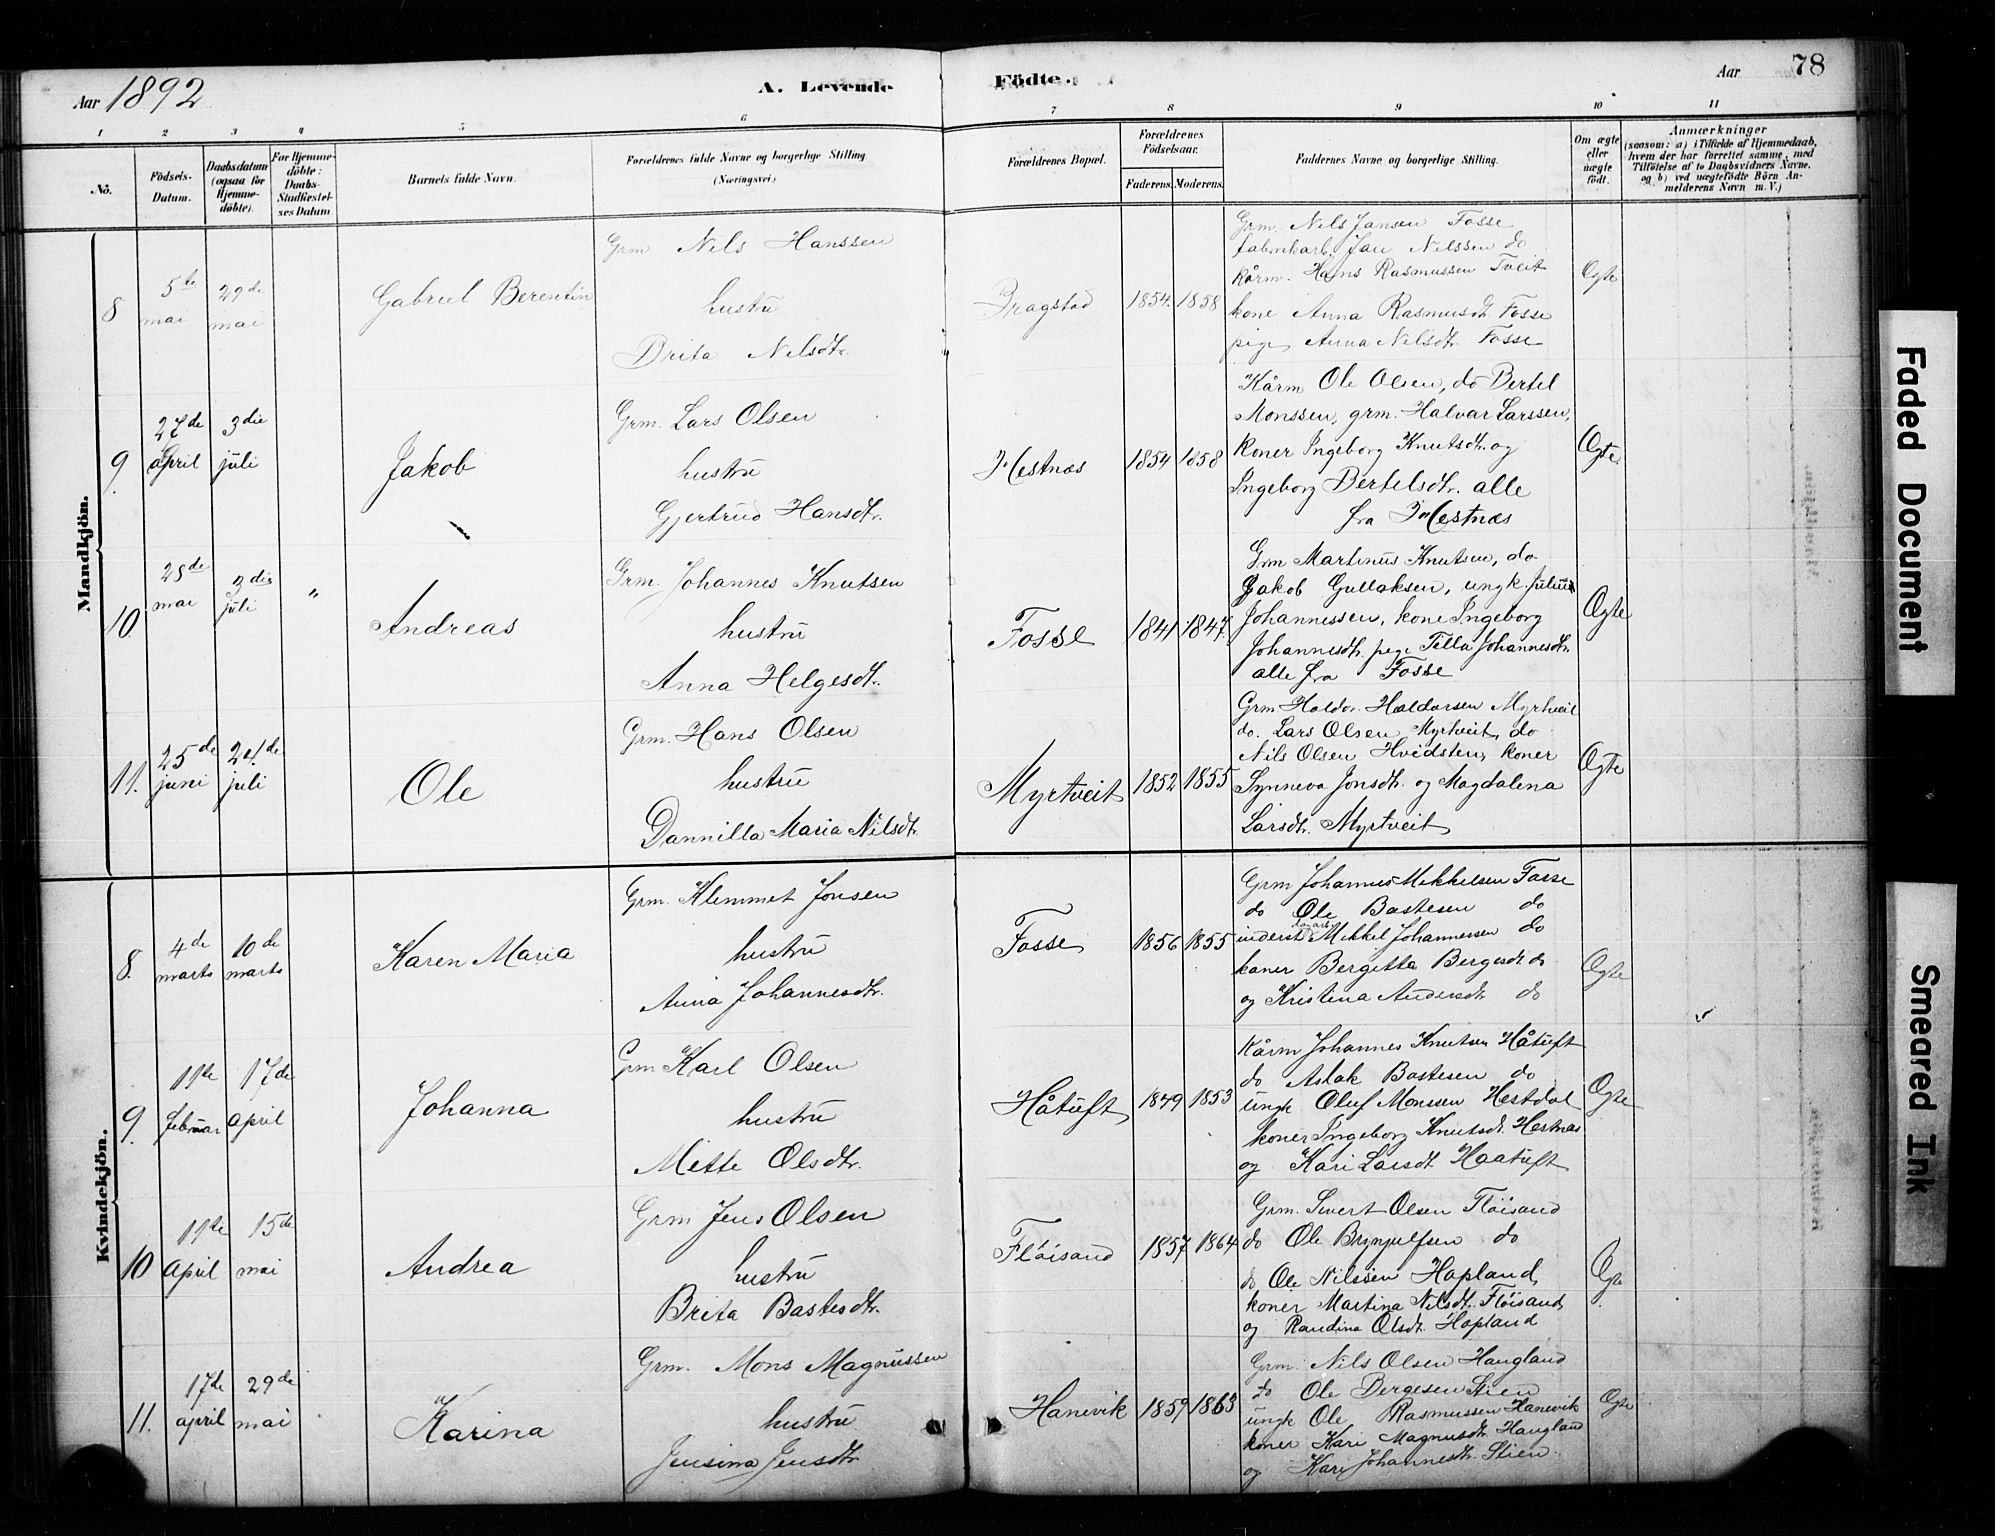 Aar 1892
A. Levende Födte.
Aar 78
1 2 3 4 5 6 7 8 9 10 11
No.
Födsels-Datum.
Daabsdatum (ogsaa for Hjemmedöbte).
For Hjemmedöbte: Daabs-Stadfæstelses Datum.
Barnets fulde Navn.
Forældrenes fulde Navne og borgerlige Stilling
(Næringsvei.)
Forældrenes Bopæl.
Forældrenes Födselsaar.
Faderens. Moderens.
Faddernes Navne og borgerlige Stilling.
Om ægte eller uægte födt.
Anmærkninger
(saasom: a) i Tilfælde af Hjemmedaab,
hvem der har forrettet samme, med
Tilföielse af to Daabsvidners Navne,
og b) ved uægtefödte Börn An-
melderens Navn m. V.)
Mandkjön.
8
5te mai
29de mai
Gabriel Berentin
Grm Nils Hanssen
hustru
Brita Nilsdtr.
Bragstad
1854. 1858
Grm. Nils Jansen Fosse
fabrikarb. Jan Nilssen do
Kårm. Hans Rasmussen Tveit
kone Anna Rasmusdtr Fosse
pige Anna Nilsdtr. Fosse
Ægte
9
27de april
3die juli
Jakob
Grm. Lars Olsen
hustru
Gjertrud Hansdtr.
Hestnæs
1854 1858
Kårm Ole Olsen, do Bertel
Monssen, grm. Halvar Larssen,
Koner Ingeborg Knutsdtr. og
Ingeborg Bertelsdtr. alle
fra Hestnæs
Ægte
10
28de mai
3die juli
"
Andreas
Grm. Johannes Knutsen
hustru
Anna Helgesdtr.
Fosse
1841 1847
Grm Martinus Knutsen, do
Jakob Gullaksen, ungk. Julius
Johannessen, kone Ingeborg
Johannesdtr. pige Tilla Johannesdtr.
alle fra Fosse
Ægte
11.
25de juni
24de juli
Ole
Grm. Hans Olsen
hustru
Dannilla Maria Nilsdtr.
Myrtveit
1852 1855
Grm. Haldor Haldorsen Myrtveit
do. Lars Olsen Myrtveit, do
Nils Olsen Hvidsten, koner
Synneva Jonsdtr. og Magdalena
Larsdtr. Myrtveit
Ægte
Kvindekjön.
8.
4de marts
10de marts
Karen Maria
Grm. Klemmet Jonsen
hustru
Anna Johannesdtr.
Fosse
1856 1855
Grm Johannes Mikkelsen Fosse
do Ole Bastesen do
inderst Mikkel Johannessen do
koner Bergitta Bergesdtr do
og Kristina Andersdtr do
Ægte
9.
11te februar
17de april
Johanna
Grm Karl Olsen
hustru
Mette Olsdtr.
Håtuft
1849 1853
Kårm Johannes Knutsen Håtuft
do Aslak Bastesen do
ungk Oluf Monssen Hestdal
koner Ingeborg Knutsdtr. Hestnæs
og Kari Larsdtr. Haatuft
Ægte
10
19de april
15de mai
Andrea
Grm Jens Olsen
hustru
Brita Bastesdtr.
Flöisand
1857 1864
Grm. Sivert Olsen Flöisand
do Ole Brynjulfsen do
do Ole Nilssen Hopland,
koner Martina Nilsdtr. Flöisand,
og Randina Olsdtr. Hopland
Ægte
11.
17de april
29de mai
Karina
Grm. Mons Magnussen
hustru
Jensina Jensdtr
Hanevik
1859 1863
Grm. Nils Olsen Haugland
do Ole Bergesen Stien
ungk Ole Rasmussen Hanevik
koner Kari Magnusdtr. Haugland
og Kari Johannesdtr. Stien.
Ægte
Faded Document
Smeared Ink